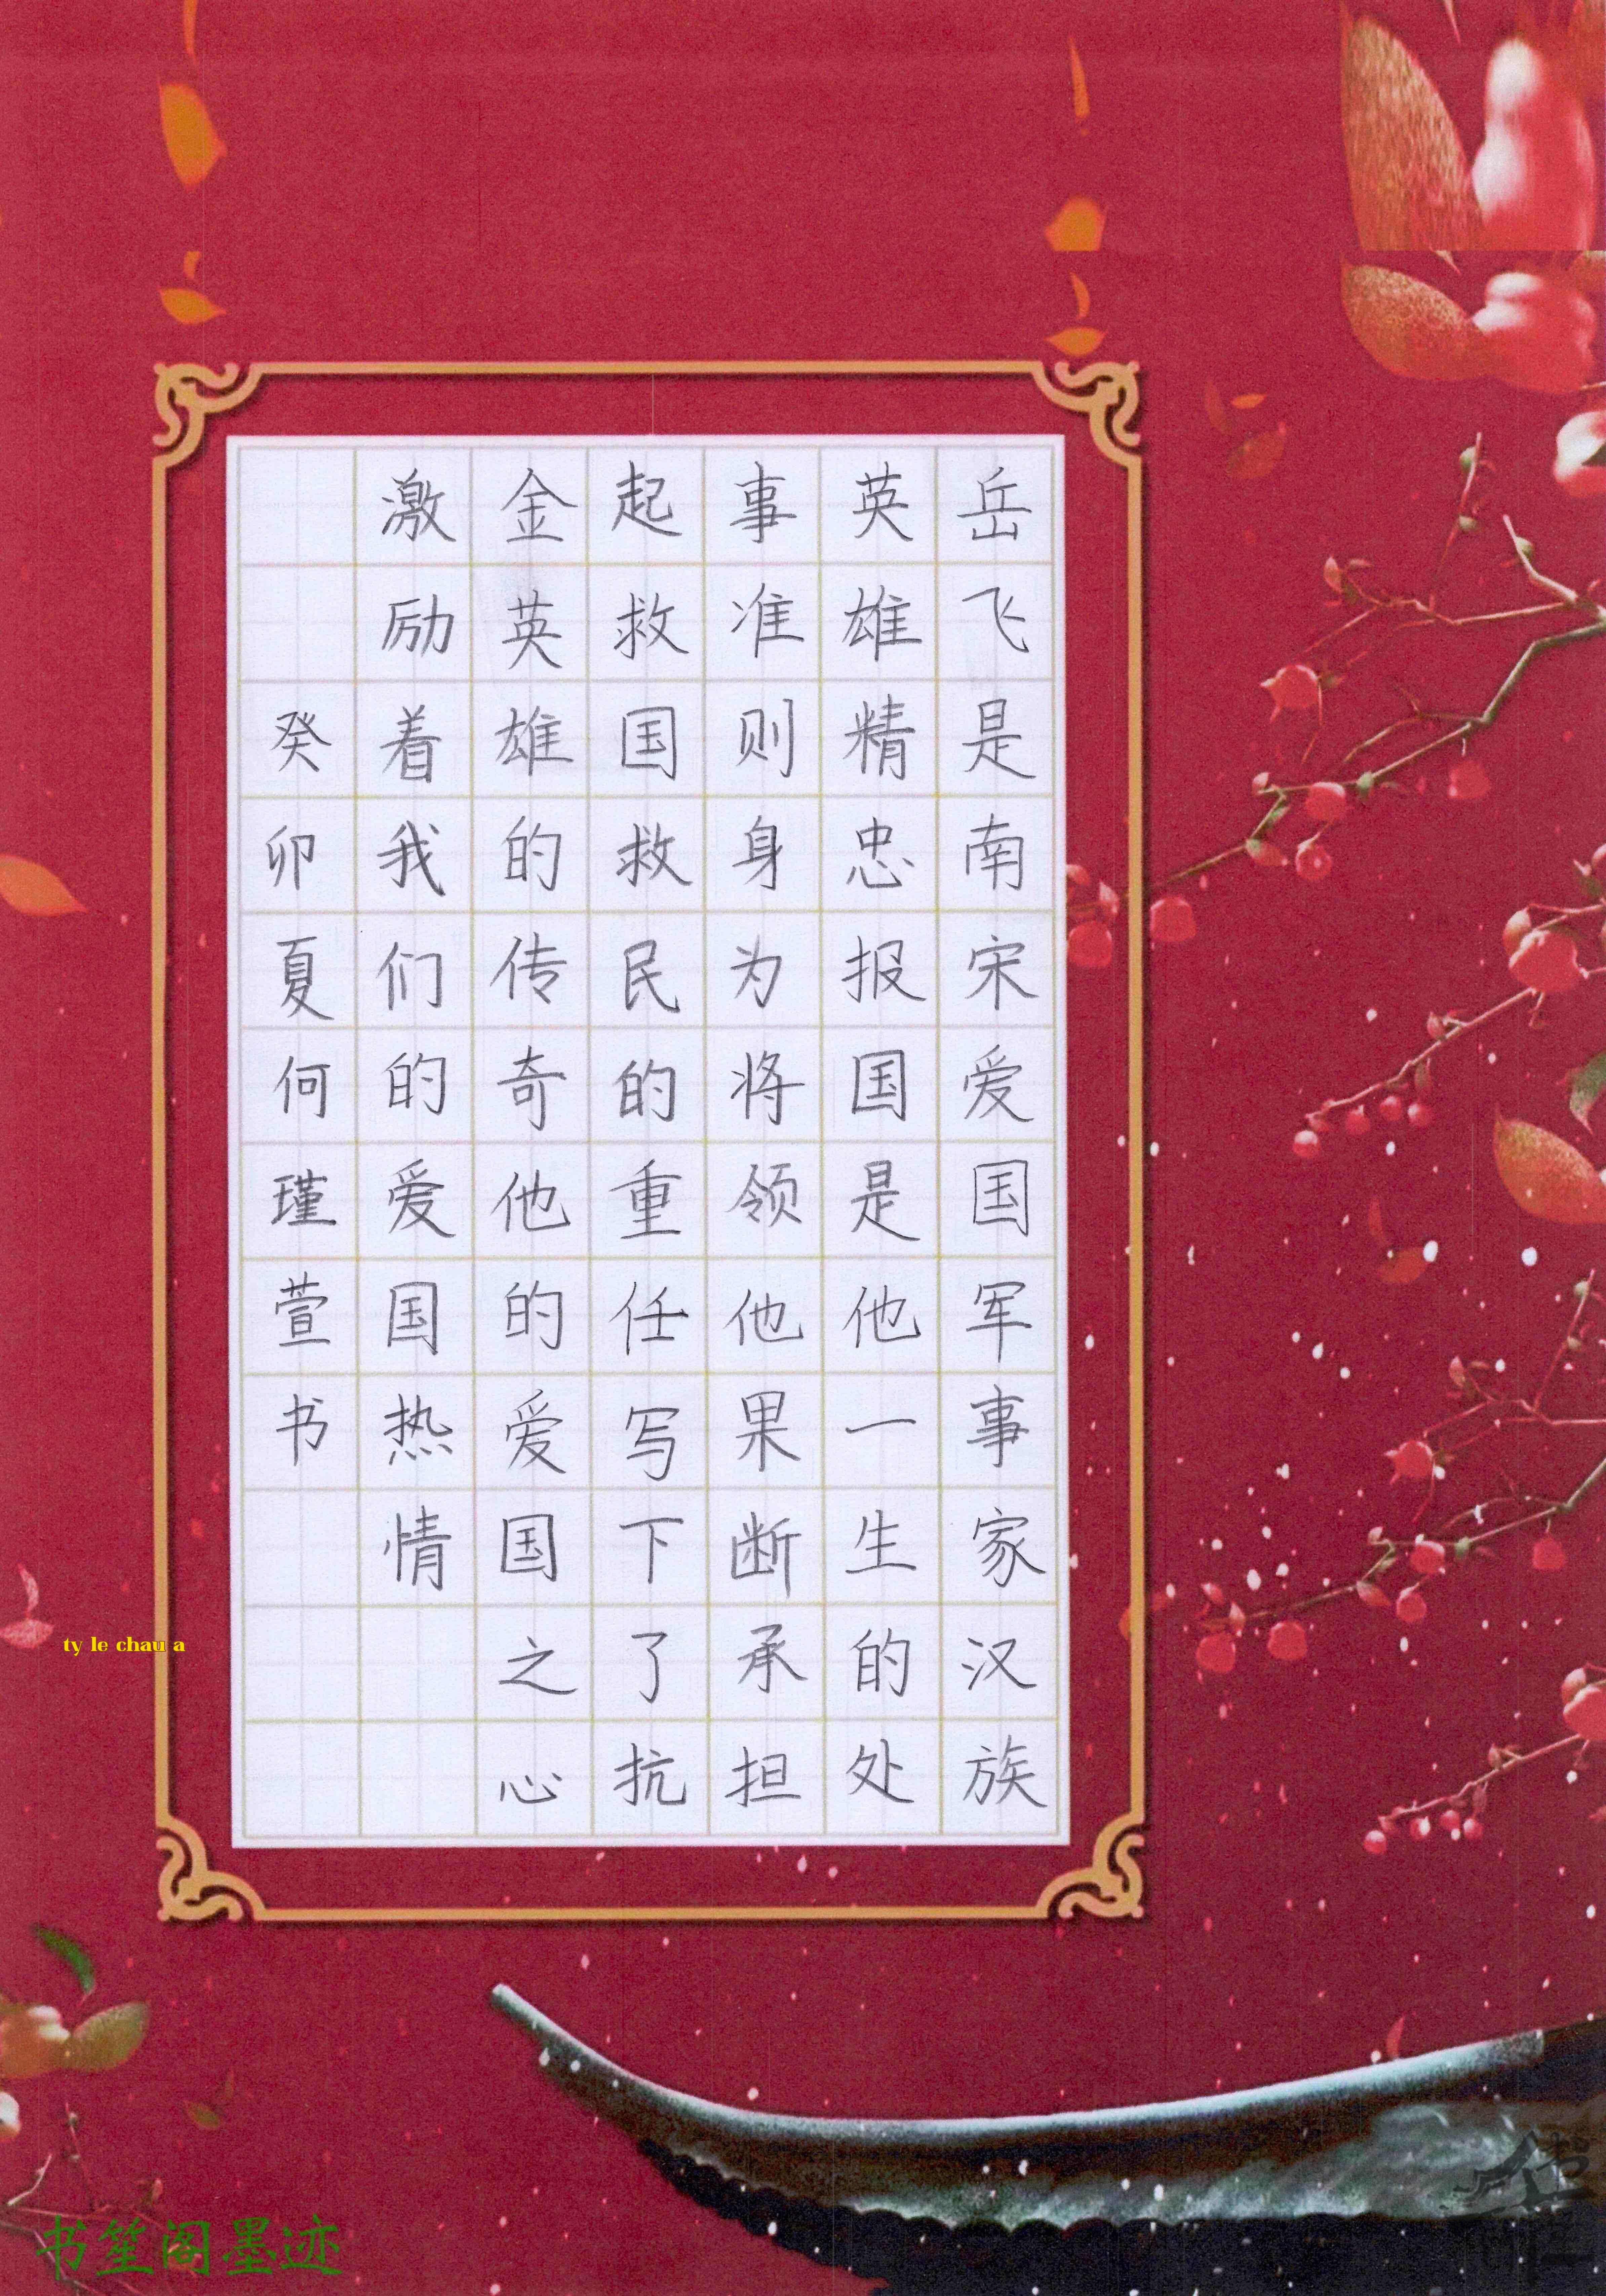 岳飞是南宋爱国军事家汉族
英雄精忠报国是他一生的处
事准则身为将领他果断承担
起救国救民的重任写下了抗
金英雄的传奇他的爱国之心
激励着我们的爱国热情
癸卯夏何瑾萱书
ty le chau a
书笙阁墨迹